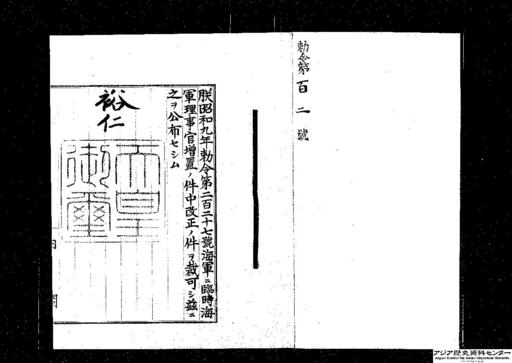 勅令第百二號
朕昭和九年勅令第二百二十七號海軍ニ臨時海
軍理事官增置ノ件中改正ノ件ヲ裁可シ茲ニ
之ヲ公布セシム
裕仁
天皇御璽
アジア歴史資料センター
Japan Center for Asian Historical Records